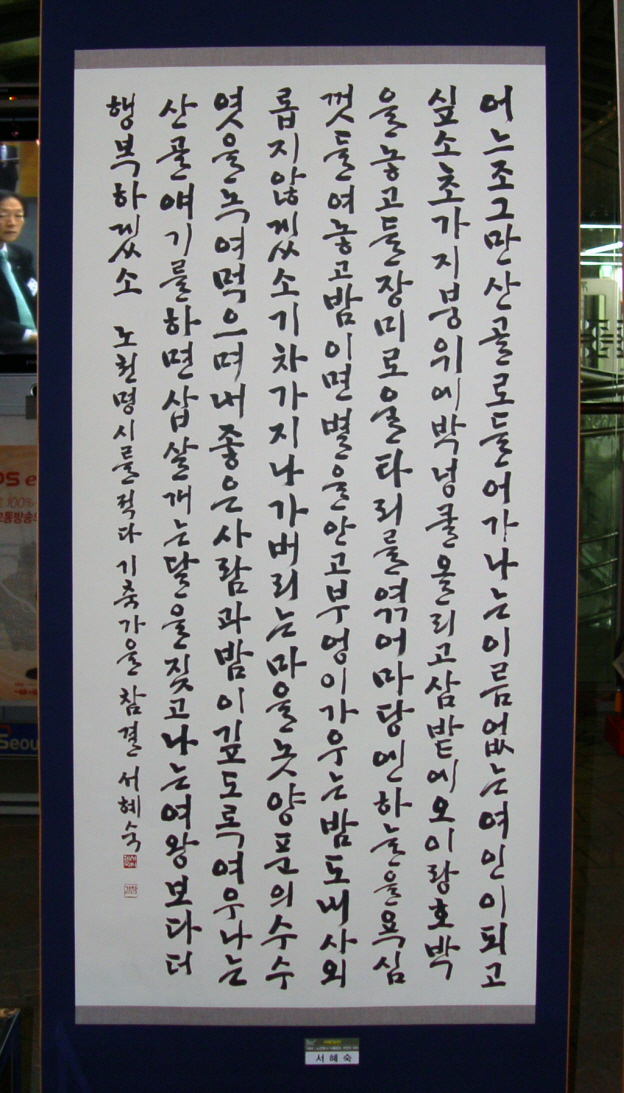 어느조그만산골로들어가나는이름없는여인이되고
싶소초가지붕위에박넝쿨올리고삼밭에오이랑호박
을놓고들장미로울타리를엮어마당엔하늘을욕심
껏들여놓고밤이면별을안고부엉이가우는밤도내사외
롭지않겠소기차가지나가버리는마을놋양푼의수수
엿을녹여먹으며내좋은사람과밤이깊도록여우나는
산골얘기를하면삽살개는달을짖고나는여왕보다더
행복하겠소 노천명시를적다 기축가을 참결 서혜숙
서혜숙
Seoul